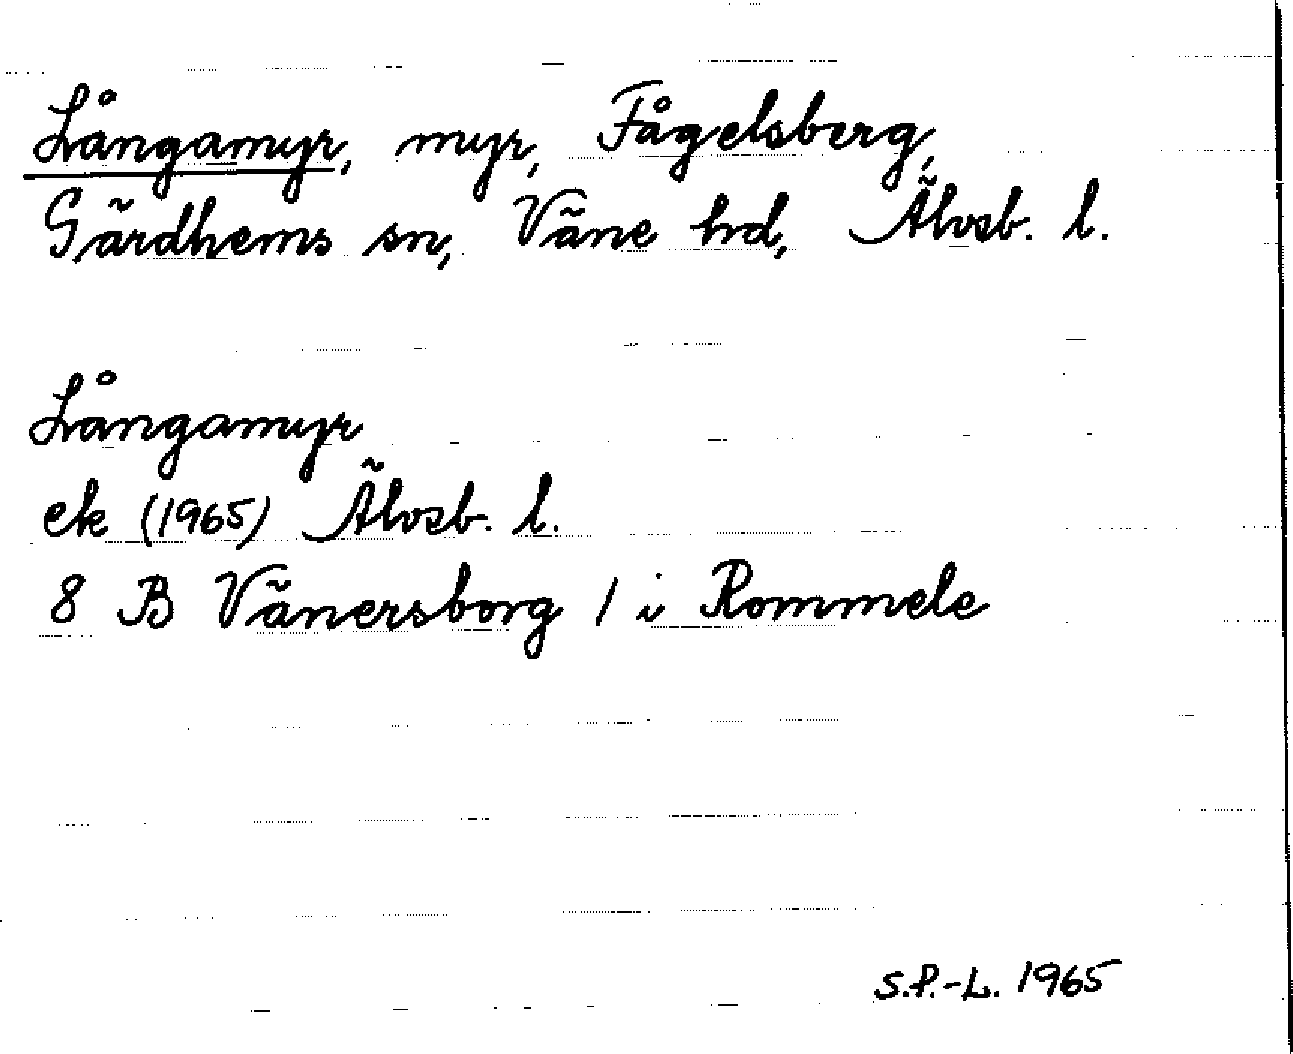 Långamyr, myr, Fågelsberg,
Gärdhems sn, Väne hd, Älvsb. l.
Långamyr
ek (1965) Älvsb. l.
8 B Vänersborg / i Rommele
S.P.-L. 1965